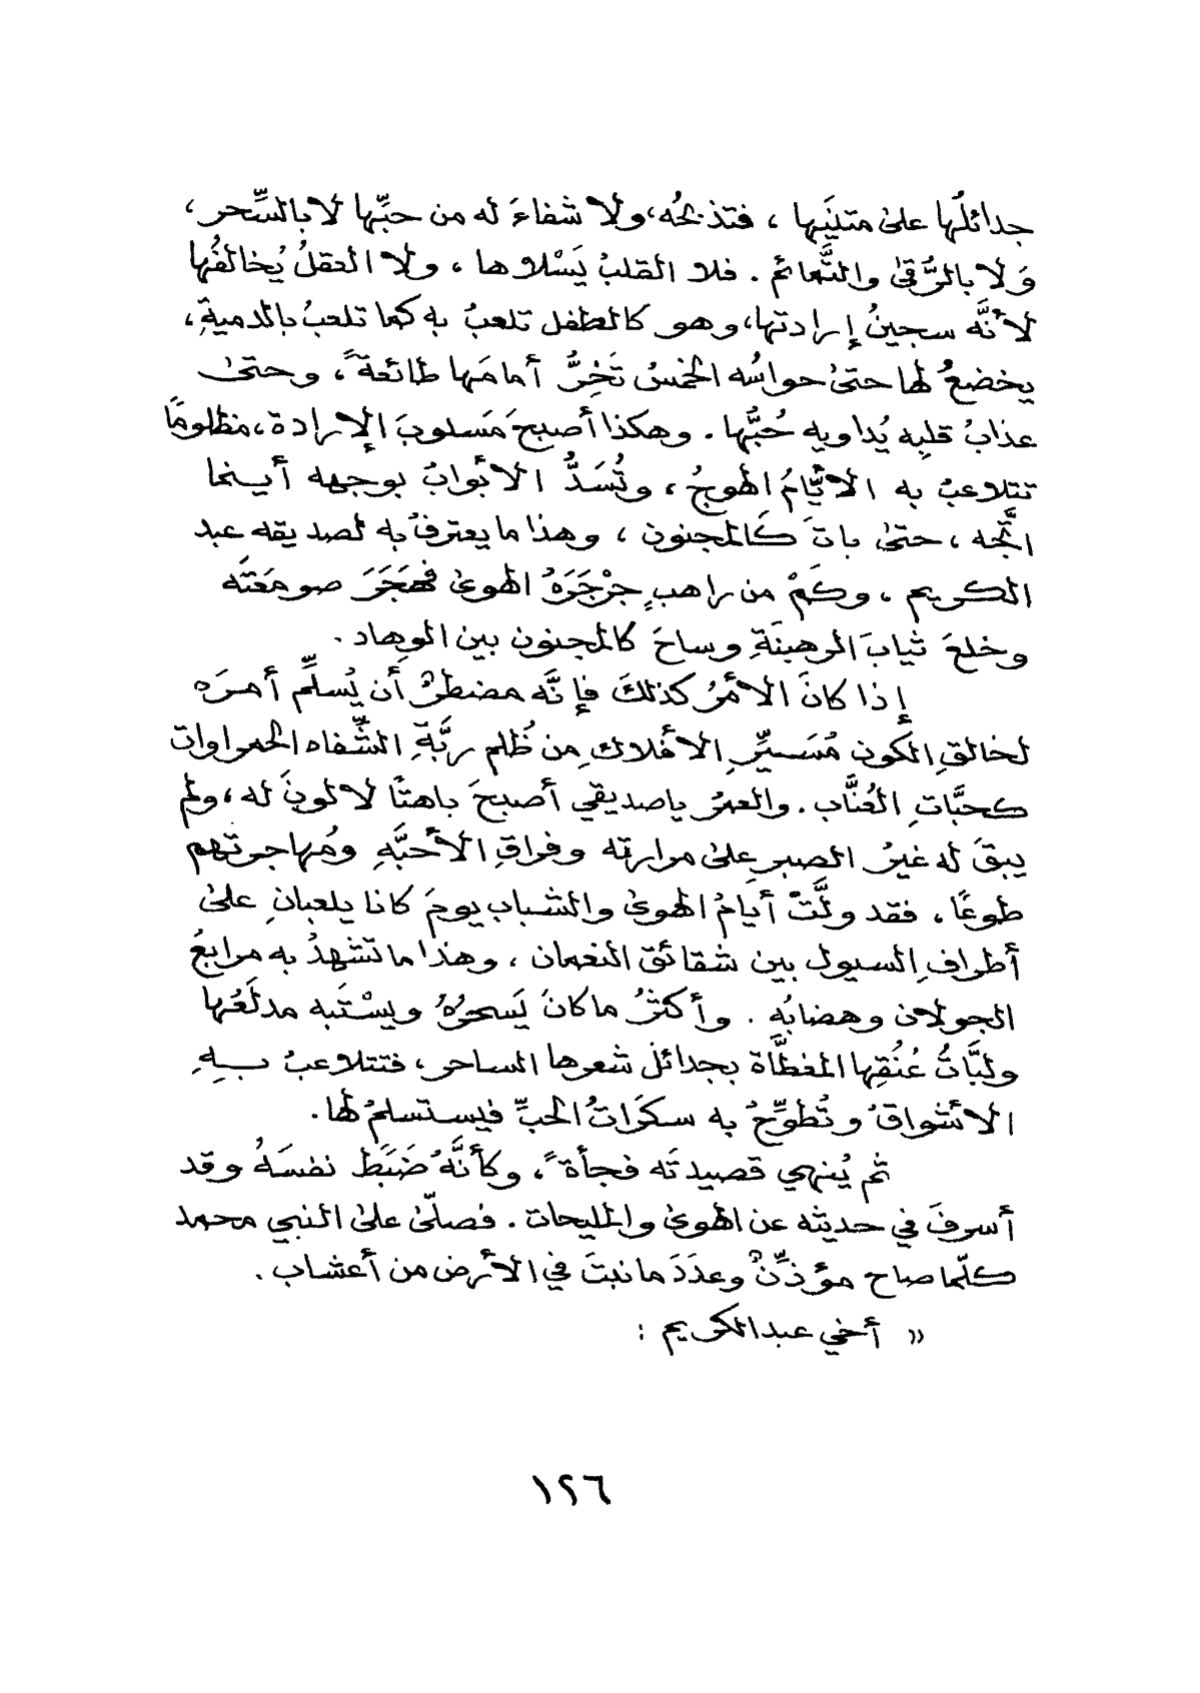 جدائلُها على متنَيها ، فتذبحُه، ولا شفاءَ له من حبِّها لا بالسِّحر،
وَلا بالرُّقى والتَّمائم . فلا القلبُ يَسْلاها ، ولا العقلُ يُخالفُها
لأنَّه سجينُ إرادتها، وهو كالطفل تلعبُ به كما تلعبُ بالدميةِ،
يخضعُ لها حتى حواسُه الخمسُ تَخِرُّ أمامَها طائعةً ، وحتى
عذابُ قلبِه يُداويه حُبُّها . وهكذا أصبحَ مَسلوبَ الإرادة، مظلومًا
تتلاعبُ به الأيَّامُ الهوجُ ، وتُسَدُّ الأبوابُ بوجهه أينما
اتَّجه ، حتى باتَ كَالمجنون ، وهذا ما يعترفُ به لصديقه عبد
الكريم ، وكَمْ من راهبٍ جرْجَرَهُ الهوى فهَجَرَ صومَعَتَه
وخلعَ ثيابَ الرهبنَةِ وساحَ كالمجنون بين الوِهاد .
إذا كانَ الأمرُ كذلكَ فإنَّه مضطرٌ أن يُسلِّم أمرَه
لخالقِ الكون مُسَيِّرِ الأفلاكِ من ظُلم ربَّةِ الشِّفاه الحمراوات
كحبَّاتِ العُنَّاب . والعمرُ يا صديقي أصبحَ باهتًا لا لونَ له ، ولم
يبقَ له غيرُ الصبرِ على مرارته وفراقِ الأحبَّهِ ومُهاجرتهم
طوعًا ، فقد ولَّتْ أيامُ الهوى والشباب يومَ كانا يلعبانِ على
أطرافِ السيول بين شقائق النعمان ، وهذا ما تشهدُ به مرابعُ
الجولان وهضابُه . وأكثرُ ما كانَ يَسحرُهُ ويسْتَبه مدلَعُها
ولبَّاتُ عُنُقِها المغطَّاة بجدائل شعرها الساحر، فتتلاعبُ بـهِ
الأشواقُ وتُطوِّحُ به سكَراتُ الحبِّ فيستسلمُ لها .
ثم يُنهي قصيدتَه فجأةً ، وكأنَّهُ ضَبَطَ نفسَهُ وقد
أسرفَ في حديثه عن الهوى والمليحات . فصلّى على النبي محمد
كلّما صاح مؤذِّنٌ وعدَدَ ما نبتَ في الأرض من أعشاب .
" أخي عبد الكريم :
١٢٦